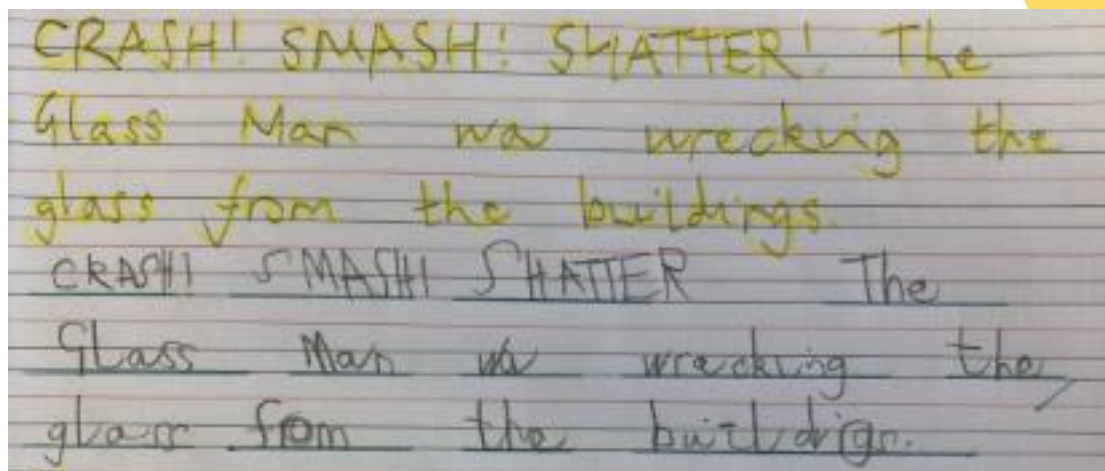 CRASH! SMASH! SHATTER! The
Glass Man wa wrecking the
glass from the buildings.
CRASH! SMASH! SHATTER The
Glass Man wa wrecking the,
glass from the buildigs.